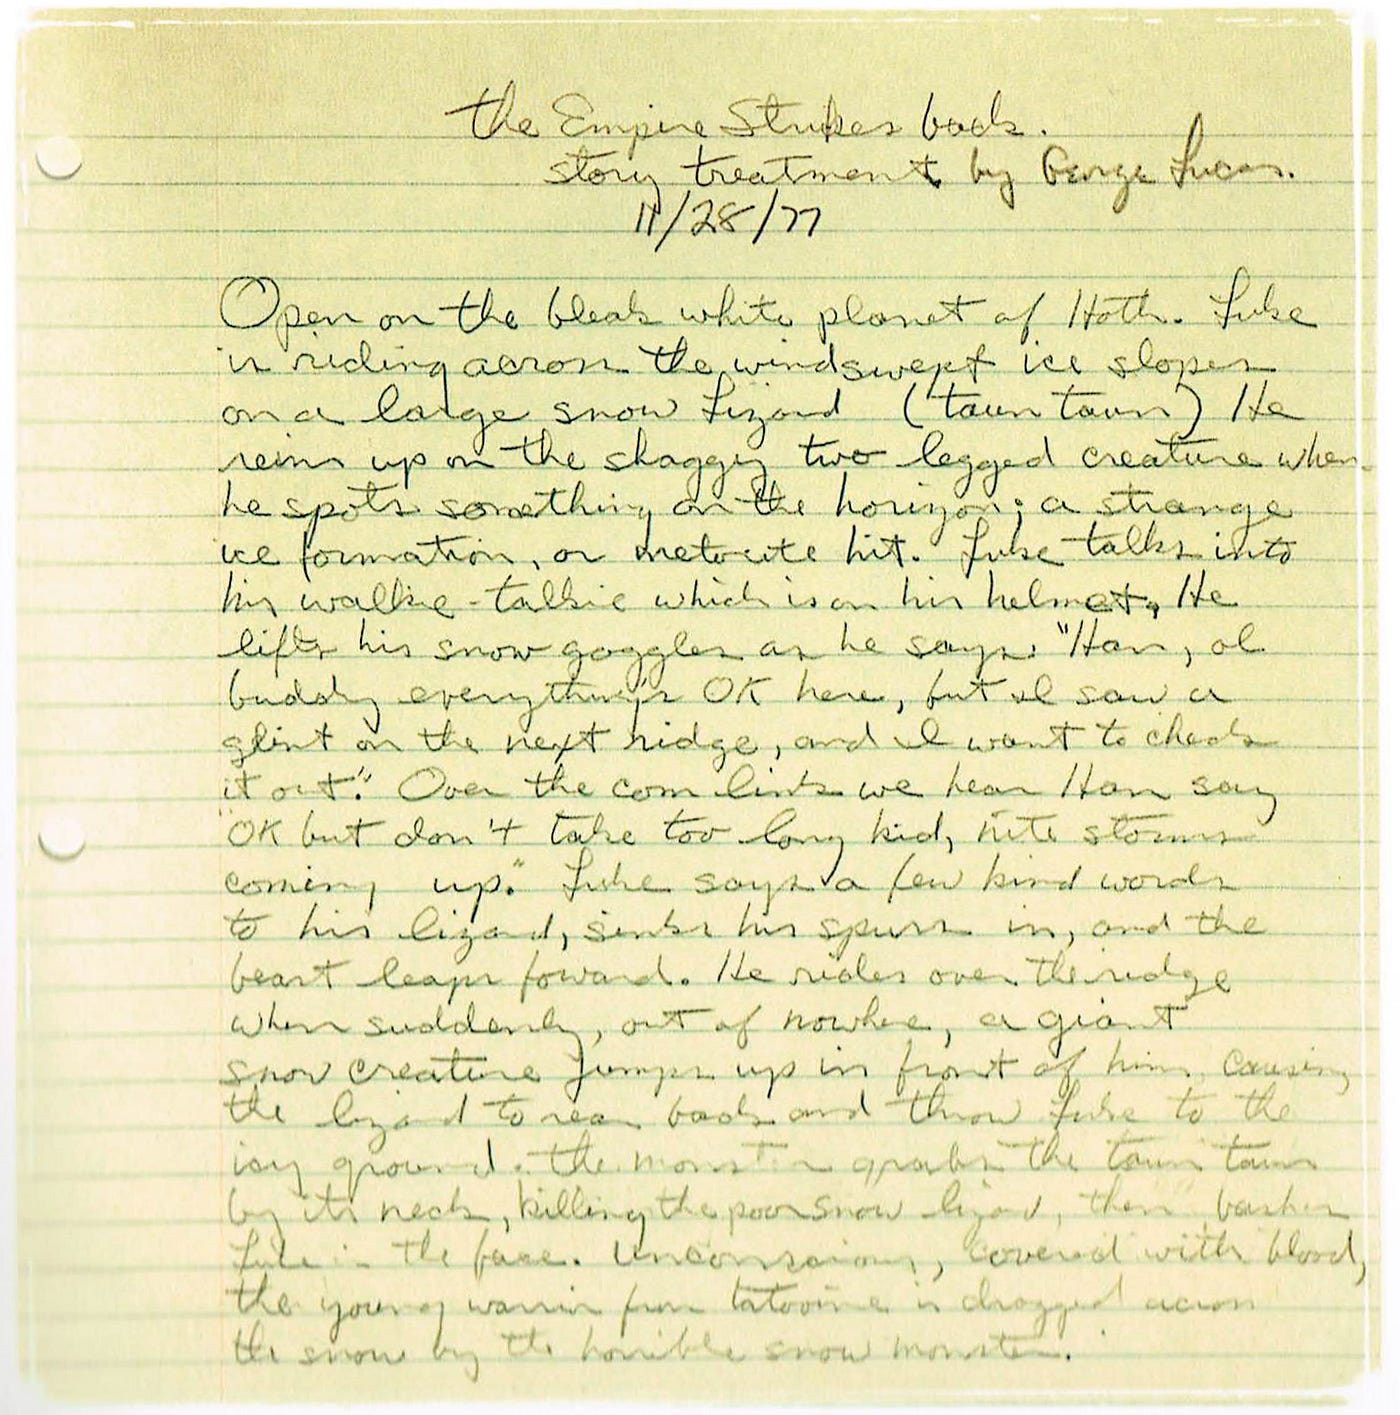 the Empire Strikes back.
story treatment by George Lucas.
11/28/77
Open on the bleak white planet of Hoth. Luke
is riding across the windswept ice slopes
on a large snow Lizard (taun taun) He
reins up on the shaggy two legged creature when
he spots something on the horizon; a strange
ice formation, or meteorite hit. Luke talks into
his walkie-talkie which is on his helmet, He
lifts his snow goggles as he says: "Han, ol
buddy everything's OK here, but I saw a
glint on the next ridge, and I want to check
it out." Over the com link we hear Han say
"OK but don't take too long kid, nite storms
coming up." Luke says a few kind words
to his lizard, sinks his spurs in, and the
beast leaps foward. He rides over the ridge
when suddenly, out of nowhere, a giant
snow creature jumps up in front of him, causing
the lizard to rear back and throw Luke to the
icy ground. the monster grabs the taun taun
by its neck, killing the poor snow lizard, then bashes
Luke in the face. Unconscious, covered with blood,
the young warrior from tatooine is dragged across
the snow by the horrible snow monster.